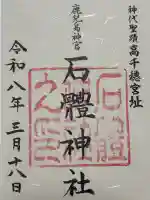 神代聖蹟 高千穂宮址
鹿児島神宮
石體神社
令和八年三月十八日